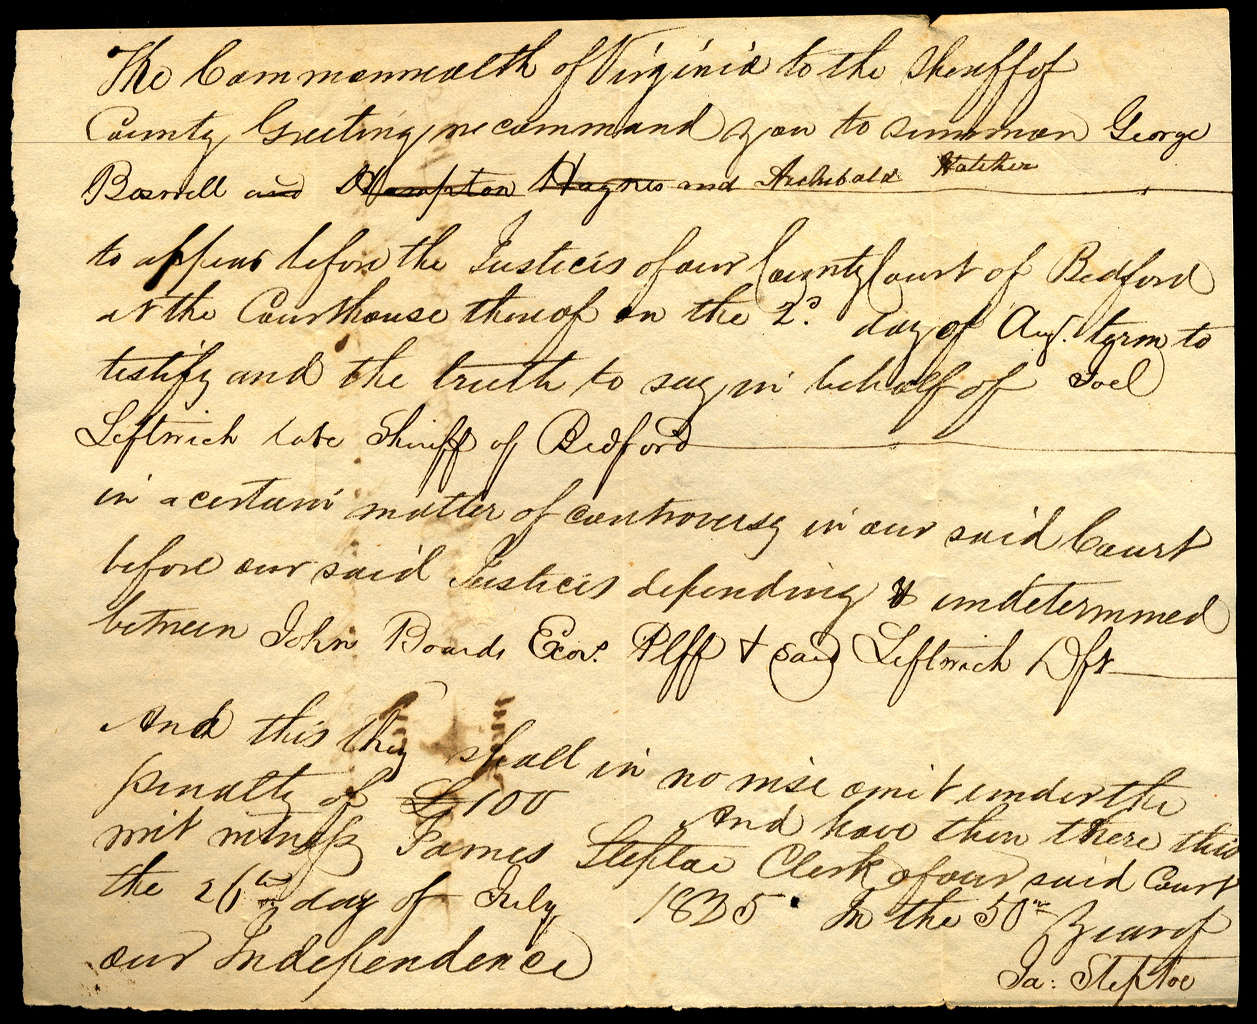 The Commonwealth of Virginia to the Sheriff of
County Greeting, we command you to summon George
Boswell and Hampton Haynes and Archibald Hatcher
to appear before the Justices of our County Court of Bedford
at the Courthouse thereof on the 2d. day of Augt. term to
testify and the truth to say in behalf of Joel
Leftwich late Sheriff of Bedford
in a certain matter of controversy in our said Court
before our said Justices depending & undetermined
between John Boards Exor. Plff & said Leftwich Dft
And this they shall in no wise omit under the
penalty of £100 And have then there this
writ witness James Steptoe Clerk of our said Court
the 26th day of July 1825. In the 50th year of
our Independence
Ja: Steptoe